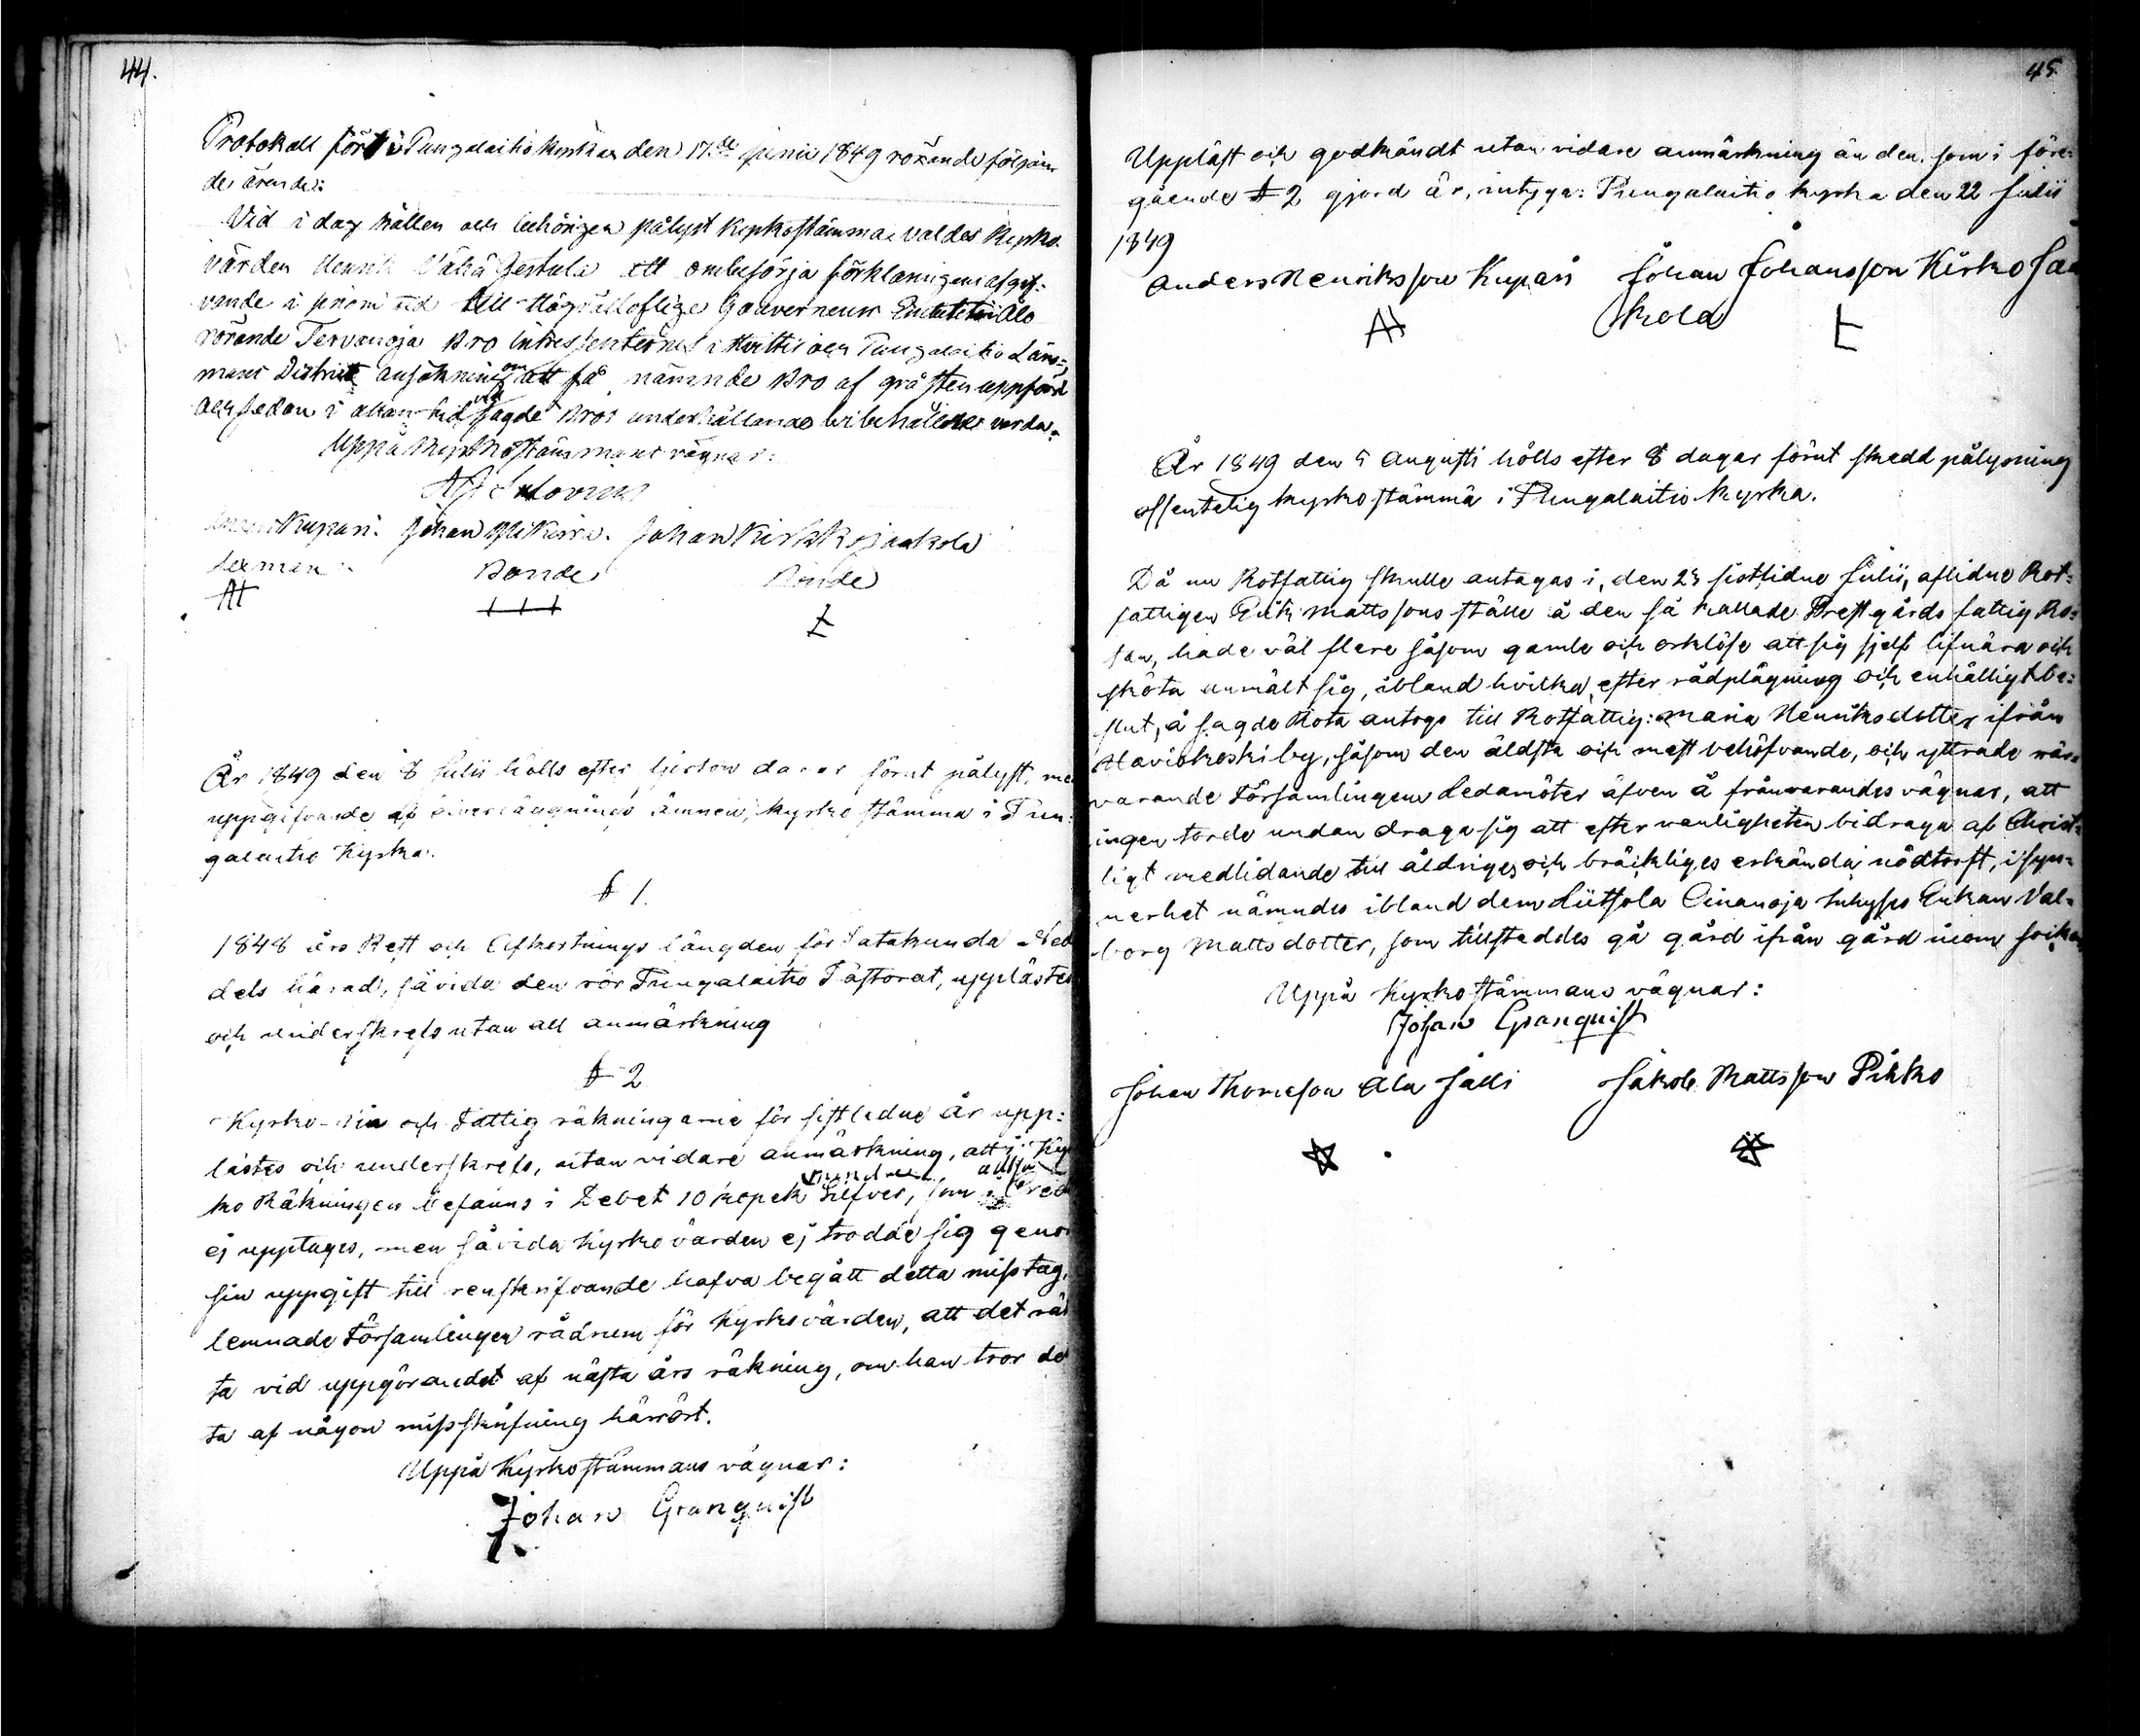 44.
Protokoll fört i Pungalaitio kyrka den 17de Junii 1849 rörande följan-
de ärende:
Vid i dag hållen och behörigen pålyst Kyrkostämma valdes Kyrko-
värden Henrik Vähä Jestula att ombesörja förklaringens afgif-
vande i rörande Tervanoja Bro Intressenternes i Huittis och Pungalaitio Läns-
mans District ansökning om att få nämnde Bro af gråsten uppförd
och sedan i allan tid vid sagde Bros underhållande bibehållne varda.
Uppå Kyrkostämmans vägnar:
Kupari. Johan Mikurra. Johan Kirkkojaakola
Sexman Bonde Bonde
År 1849 den 8 Julii hölls efter fjorton dagar förut pålyst, med
uppgifvande af öfverläggnings ämnen, Kyrko stämma i Pun-
galaitio Kyrka.
§ 1.
1848 års Rest och Afkortnings längden för Satakunda Ned
dels härad, såvida den rör Pungalaitio Pastorat, upplästes
och underskrefs utan all anmärkning
§ 2
Kyrko- Vin och Fattig räkningarne för sistledne År upp-
lästes och underskrefs, utan vidare anmärkning, att i Kyr
ko Räkningen befanns i Debet 10 kopek Silfver, som i Cred
ej upptages, men såvida Kyrkovärden ej trodde sig genom
sin uppgift till renskrifvande hafva begått detta misstag,
lemnade Församlingen rådrum för Kyrkovärden, att det rät
ta vid uppgörandet af nästa års räkning, om han tror det
ta af någon misskrifning härrört.
Uppå Kyrkostämmans vägnar:
Johan Granquist
45
Uppläst och godkändt utan vidare anmärkning än den som i före-
gående § 2 gjord är, intyga: Pungalaitio kyrka den 22 Julii
1849
Anders Henriksson Kupari Johan Johansson Kirko Jaa
kola
År 1849 den 5 Augusti hölls efter 8 dagar förut skedd pålysning
offentelig kyrkostämma i Pungalaitio kyrka.
Då nu Rotfattig skulle antagas i, den 23 sistlidne Julii, aflidne Rot-
fattigen Erik Mattssons ställe å den så kallade Prestgårds fattig Ro-
tan, hade väl flere såsom gamle och orklöse att sig sjelf lifnära och
sköta anmält sig, ibland hvilka, efter rådplägning och enhälligt be-
slut, å sagde Rota antogs till Rotfattig: Maria Henriksdotter ifrån
Haviokoski by, såsom den äldsta och mest behöfvande, och yttrade när-
varande Församlingens Ledamöter äfven å frånvarandes vägnar, att
ingen torde undan draga sig att efter vanligheten bidraga af Christ-
ligt medlidande till åldriges och bräckliges erkända nödtorft, i syn-
nerhet nämndes ibland dem Liitsola Oinanoja Inhyses Enkan Val-
borg Mattsdotter, som tillstaddes gå gård ifrån gård inom socken
Uppå Kyrkostämmans vägnar:
Johan Granquist
Johan Thomeson Ala Jalli Jakob Mattsson Pikko